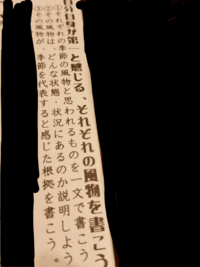 自分自身が第一と感じる、それぞれの風物を書こう
①それぞれの季節の風物と思われるものを一文で書こう
②その風物は、どんな状態、状況にあるのか説明しよう
③その風物が、季節を代表すると感じた根拠を書こう。